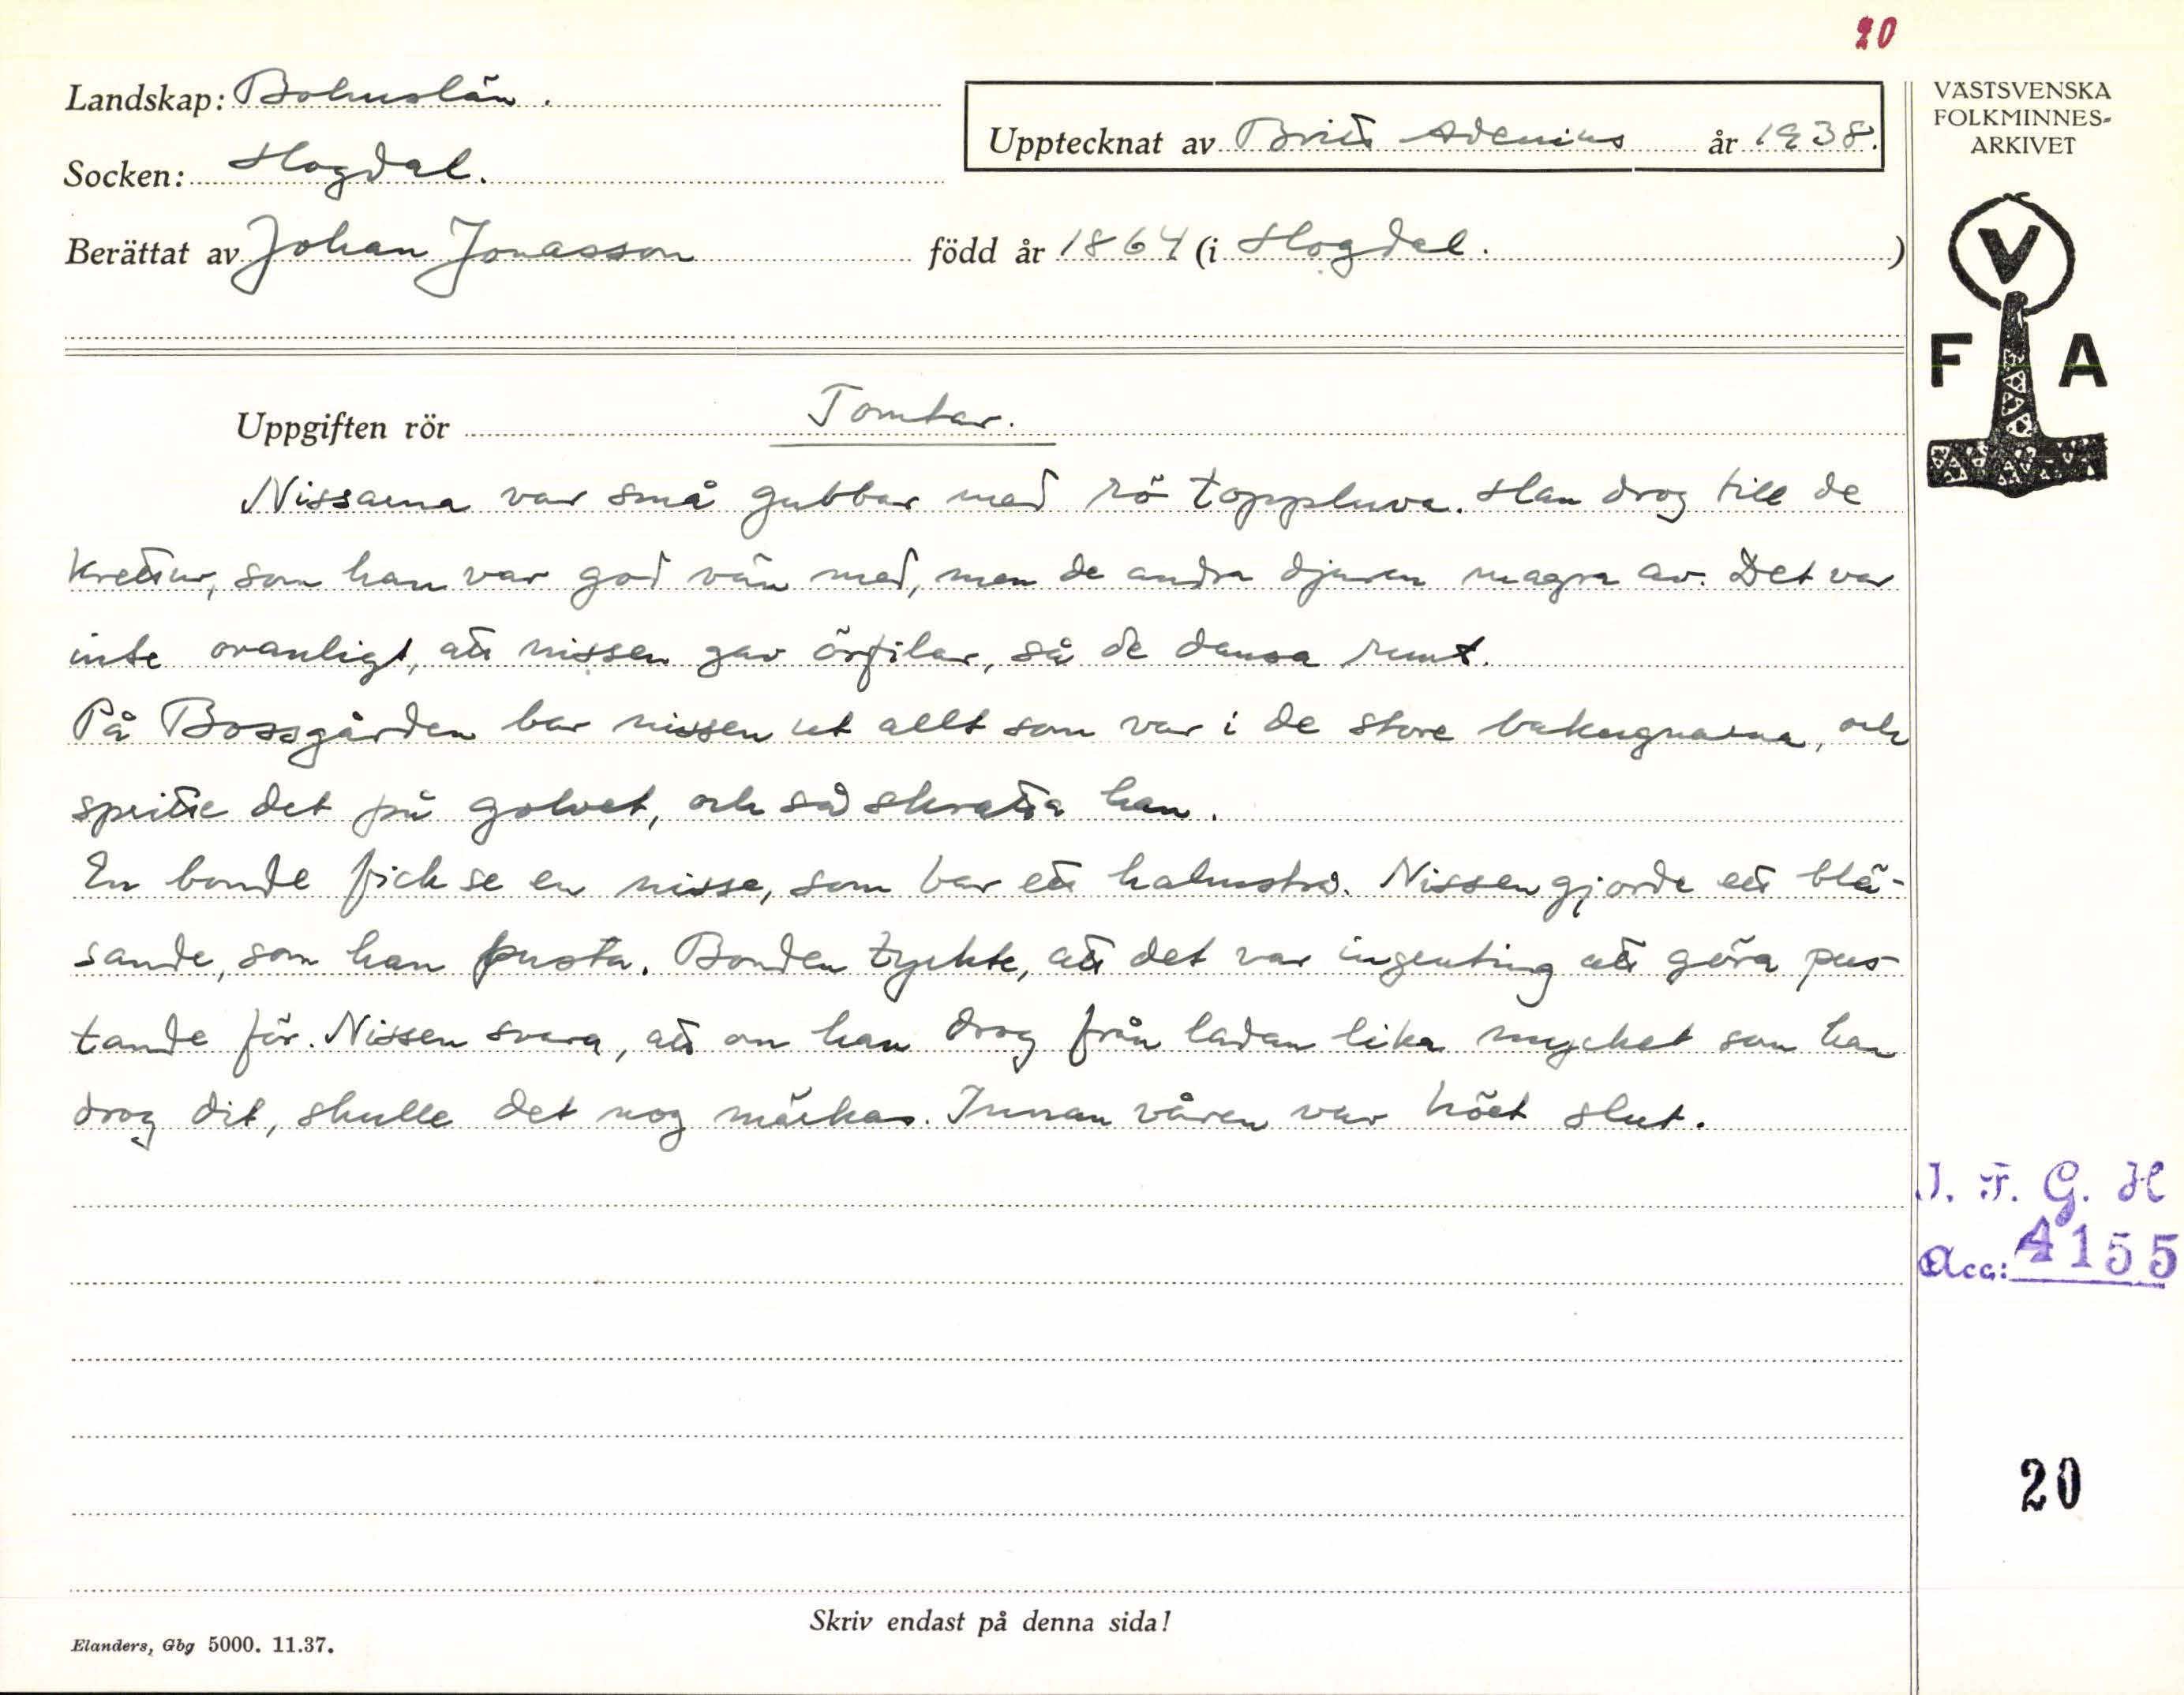 20
Landskap: Bohuslän.
VÄSTSVENSKA
FOLKMINNES-
ARKIVET
Upptecknat av Britt Adenius år 1938.
Socken: Hogdal.
Berättat av Johan Jonasson född år 1864 (i Hogdal. )
V
F A
Uppgiften rör Tomtar.
Nissarna var små gubbar med rö toppluva. Han drog till de
kretur, som han var god vän med, men de andra djuren magra av. Det var
inte ovanligt, att nissen gav örfilar, så de dansa runt.
På Bossgården bar nissen ut allt som var i de store bakugnarna, och
spritte det på golvet, och så skratta han.
En bonde fick se en nisse, som bar ett halmstrå. Nissen gjorde ett blå-
sande, som han pusta. Bonden tyckte, att det var ingenting att göra pus-
tande för. Nissen svara, att om han drog från ladan lika mycket som han
drog dit, skulle det nog märkas. Innan våren var höet slut.
I. F. G. H
Acc: 4155
20
Skriv endast på denna sida!
Elanders, Gbg 5000. 11.37.